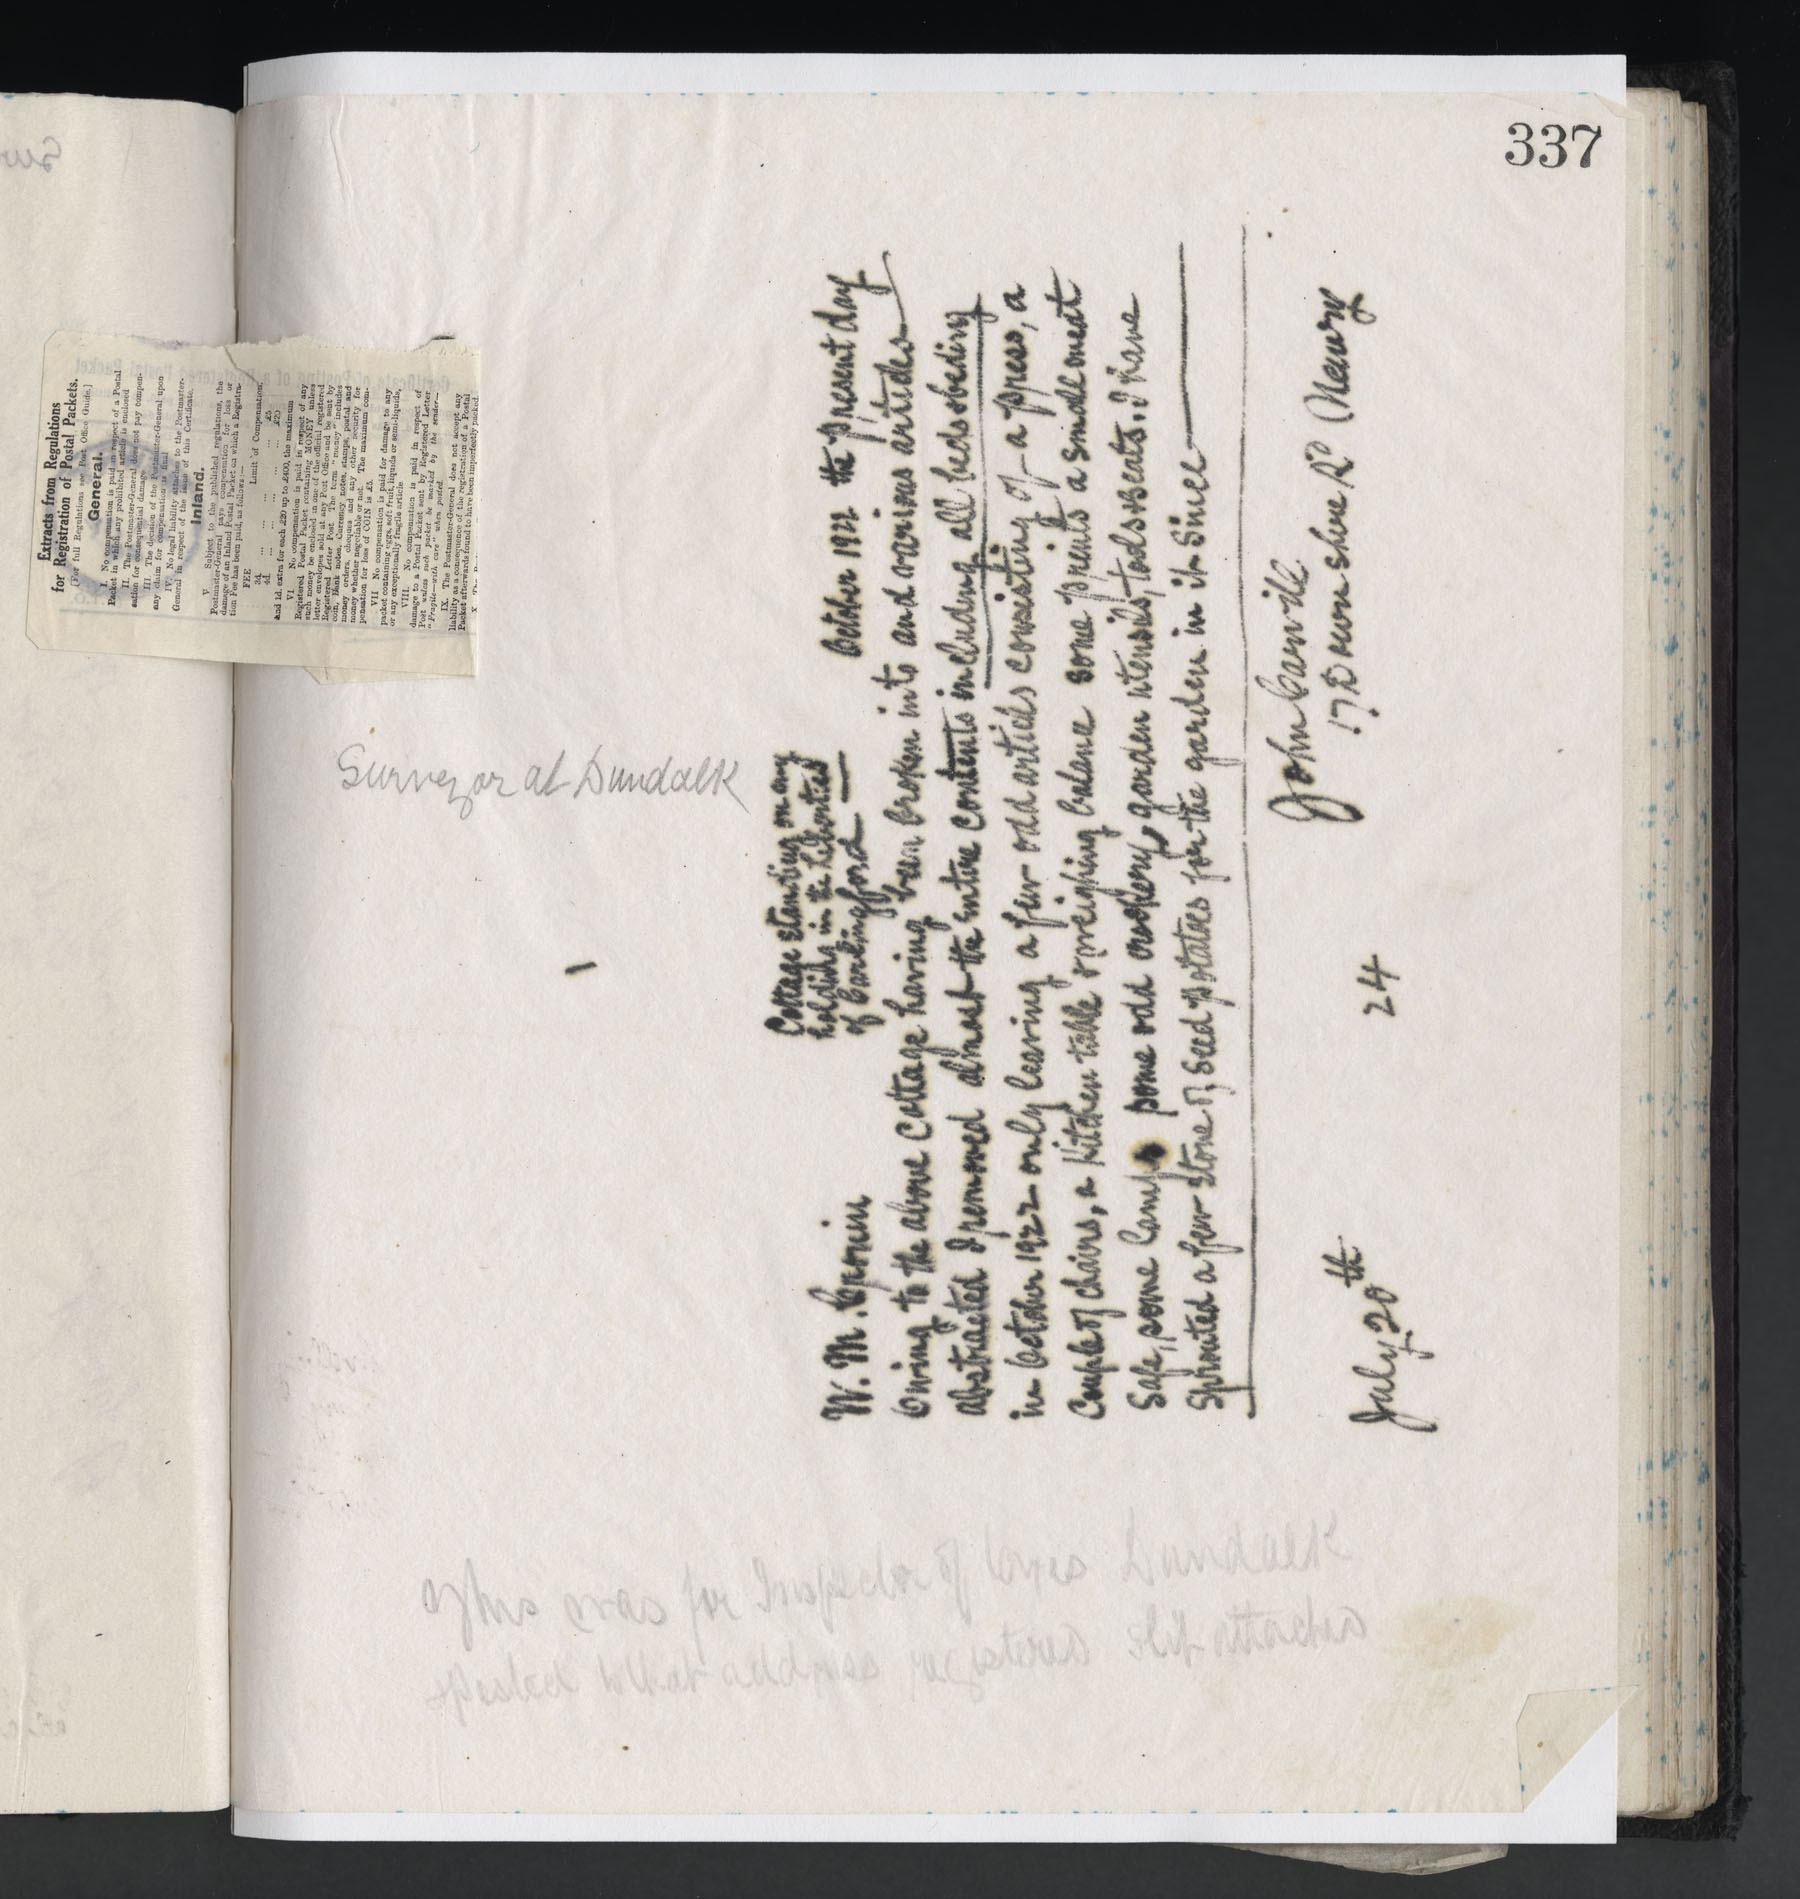 337
Extracts from Regulations
for Registration of Postal Packets.
[For full Regulations see Post Office Guide.]
General.
I. No compensation is paid in respect of a Postal
Packet in which any prohibited article is enclosed
II. The Postmaster-General does not pay compen-
sation for consequential damage
III. The decision of the Postmaster-General upon
any claim for compensation is final
IV. No legal liability attaches to the Postmaster-
General in respect of the issue of this Certificate.
Inland.
V. Subject to the published regulations, the
Postmaster-General pays compensation for loss or
damage of an Inland Postal Packet on which a Registra-
tion Fee has been paid, as follows:—
FEE Limit of Compensation.
3d. ... ... ... ... £5
4d. ... ... ... ... £20
and 1d. extra for each £20 up to £400, the maximum
VI. No compensation is paid in respect of any
Registered Postal Packet containing MONEY unless
such money be enclosed in one of the official registered
letter envelopes sold at any Post Office and be sent by
Registered Letter Post. The term "money" includes
coin, Bank notes, Currency notes, stamps, postal and
money orders, cheques and any other security for
money whether negotiable or not. The maximum com-
pensation for loss of COIN is £5.
VII No compensation is paid for damage to any
packet containing eggs, soft fruit, liquids or semi-liquids,
or any exceptionally fragile article
VIII. No compensation is paid in respect of
damage to a Postal Packet sent by Registered Letter
Post unless such packet be marked by the sender—
"Fragile—with care" when posted.
IX. The Postmaster-General does not accept any
liability as a consequence of the registration of a Postal
Packet afterwards found to have been imperfectly packed.
Surveyor at Dundalk
Cottage standing on my
holding in the Liberties
of Carlingford
W. M. Cronin October 1922 the present day
Owing to the above Cottage having been broken into and various articles
abstracted I removed almost the entire contents including all beds & beding
in October 1922 only leaving a few odd articles consisting of a press, a
Couple of chairs, a Kitchen table & weighing balance some prints a small meat
Safe, some Lamps some odd crockery, garden utensils, tools & seats. I have
Sprouted a few stone of seed potatoes for the garden in it Since
John Carvill
17 Downshire Rd Newry
July 20th 24
This was for Inspector of taxes Dundalk
posted what address registered slip attached